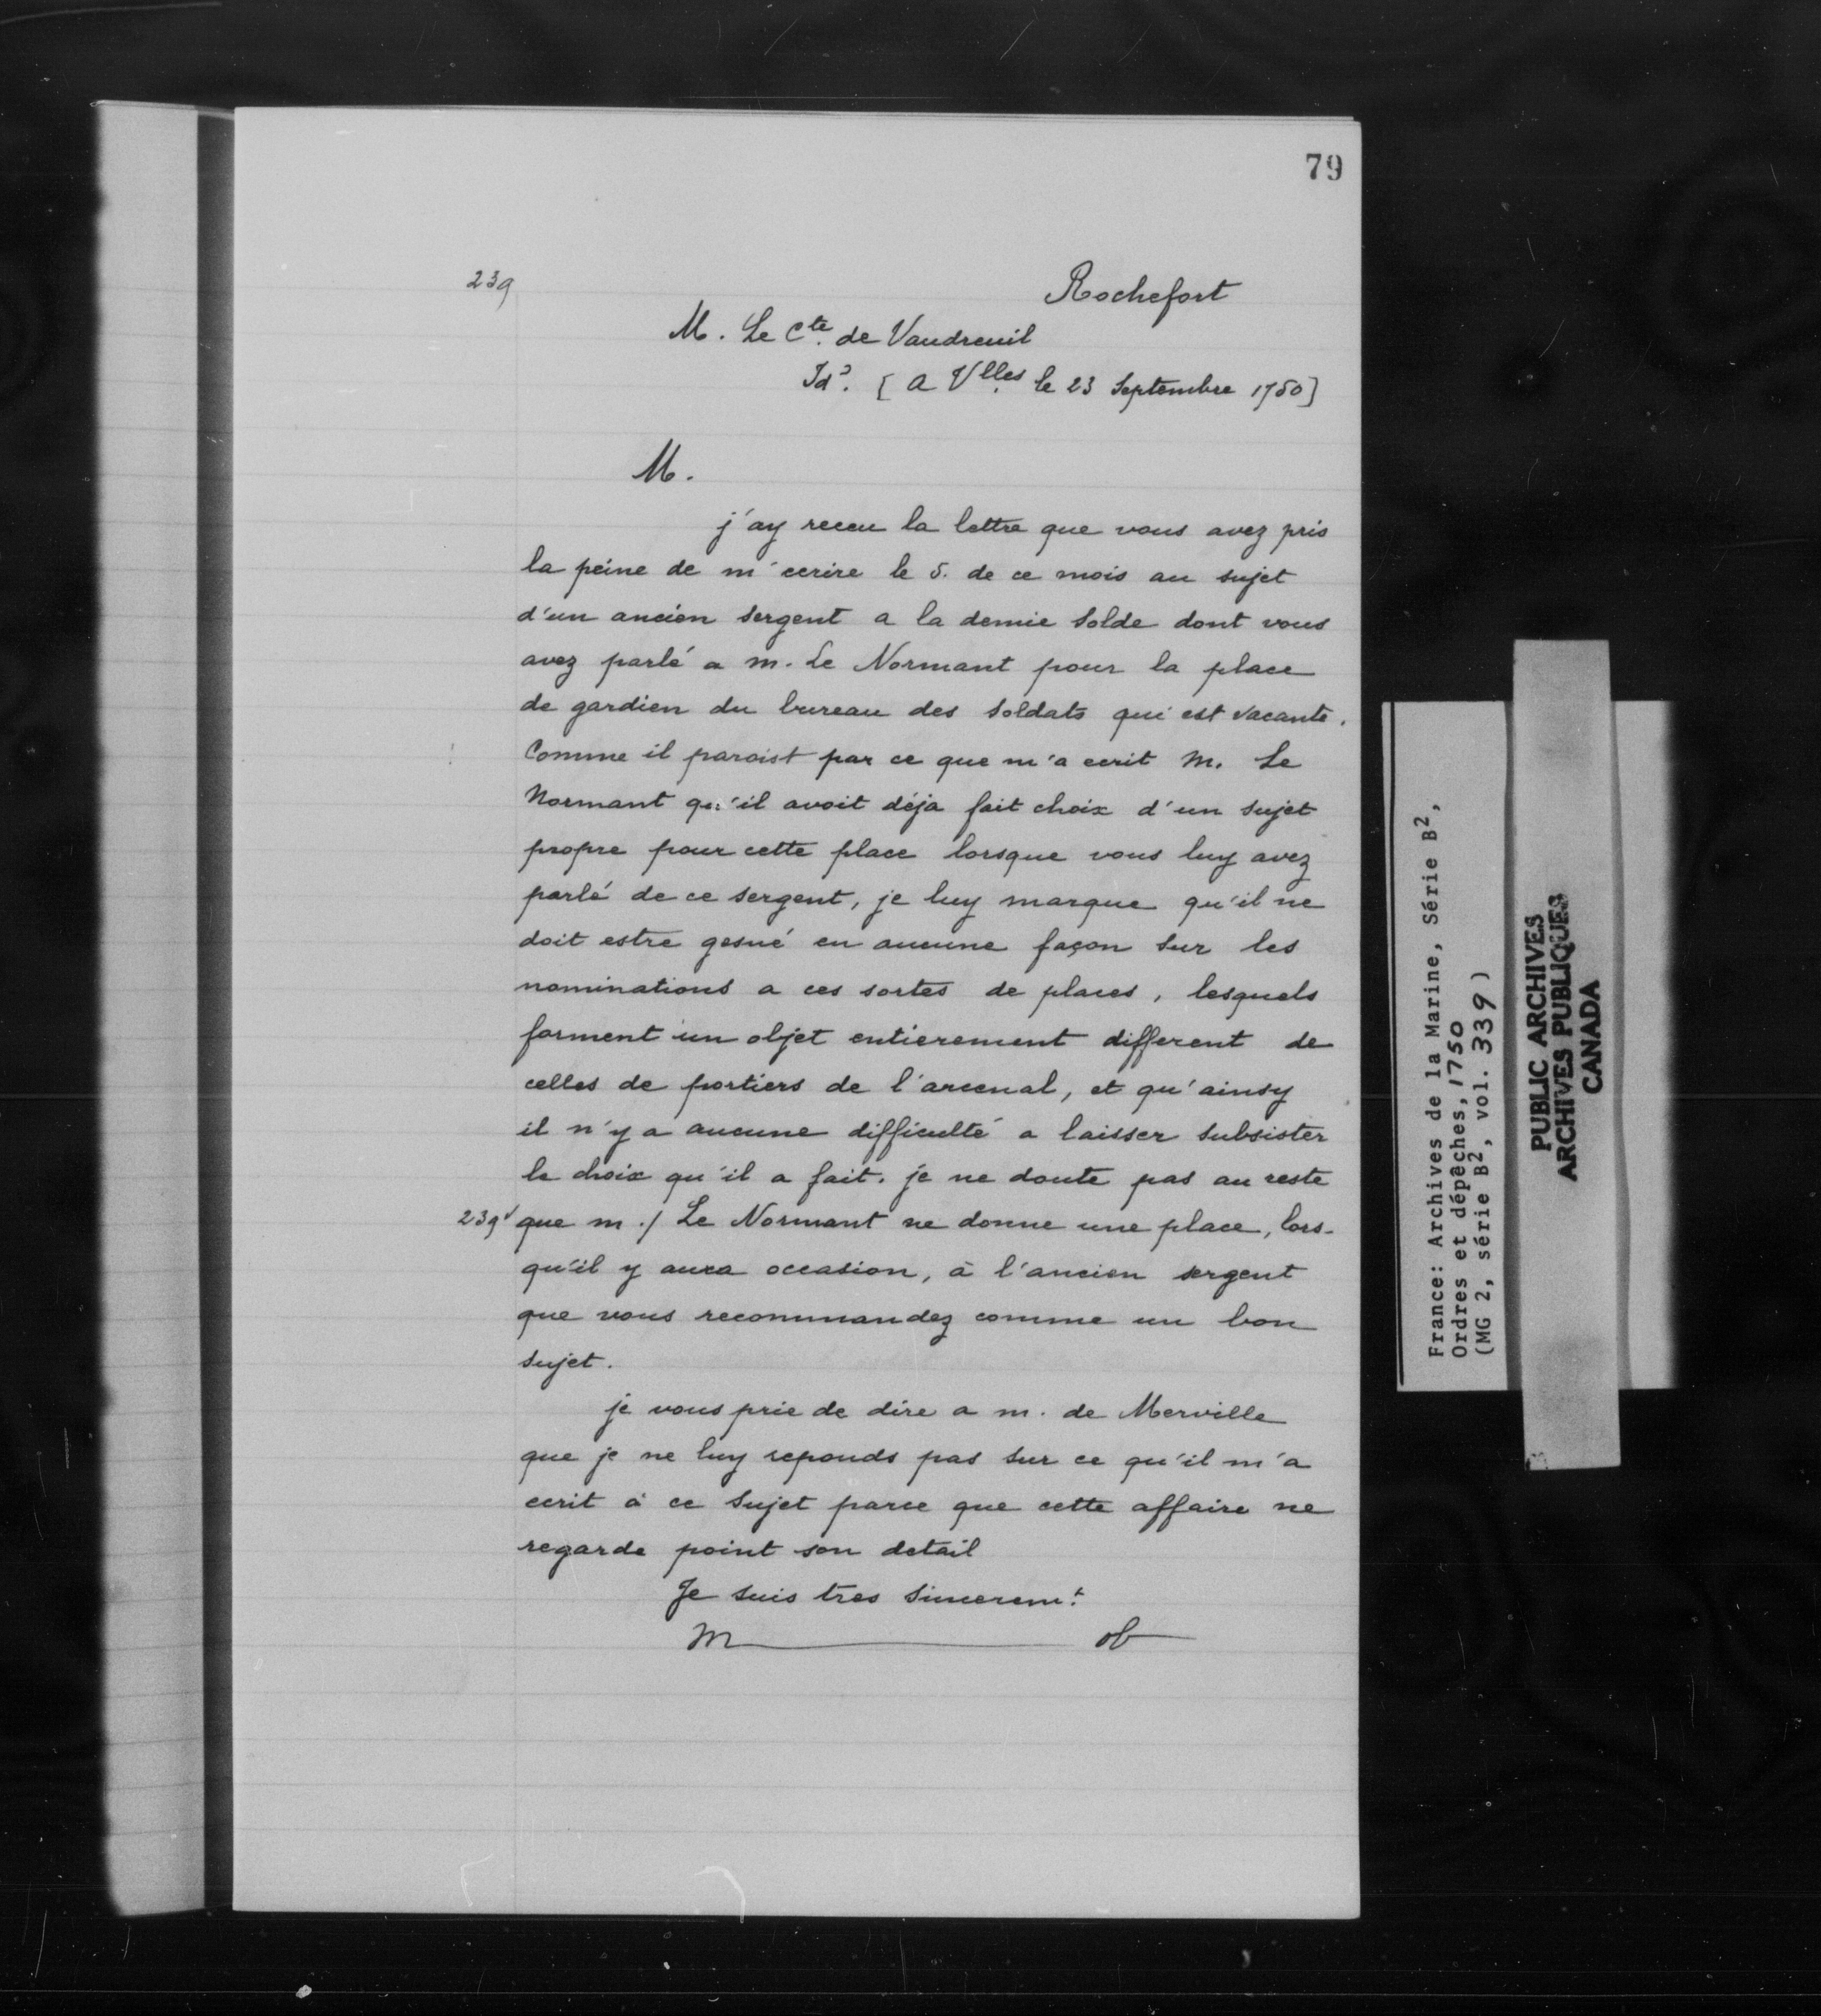 79
239
Rochefort
M. Le Cte. de Vaudreuil
Id?. [a Vlles. le 23 Septembre 1750]
M.
j'ay receu la lettre que vous avez pris
la peine de m'ecrire le 5. de ce mois au sujet
d'un ancien sergent a la demie solde dont vous
avez parlé a m. Le Normant pour la place
de gardien du bureau des soldats qui est vacante.
Comme il paroist par ce que m'a ecrit M. Le
Normant qu'il avoit déja fait choix d'un sujet
propre pour cette place lorsque vous luy avez
parlé de ce sergent, je luy marque qu'il ne
doit estre gesné en aucune façon sur les
nominations a ces sortes de places, lesquels
forment un objet entierement different de
celles de portiers de l'arcenal, et qu'ainsy
il n'y a aucune difficulté a laisser subsister
le choix qu'il a fait. je ne doute pas au reste
239v que m./ Le Normant ne donne une place, lors-
qu'il y aura occasion, à l'ancien sergent
que vous recommandez comme un bon
sujet.
je vous prie de dire a m. de Merville
que je ne luy reponds pas sur ce qu'il m'a
ecrit à ce sujet parce que cette affaire ne
regarde point son detail
Je suis tres sincerem.t
M ob
France: Archives de la Marine, Série B2,
Ordres et dépêches, 1750
(MG 2, série B2, vol. 339)
PUBLIC ARCHIVES
ARCHIVES PUBLIQUES
CANADA